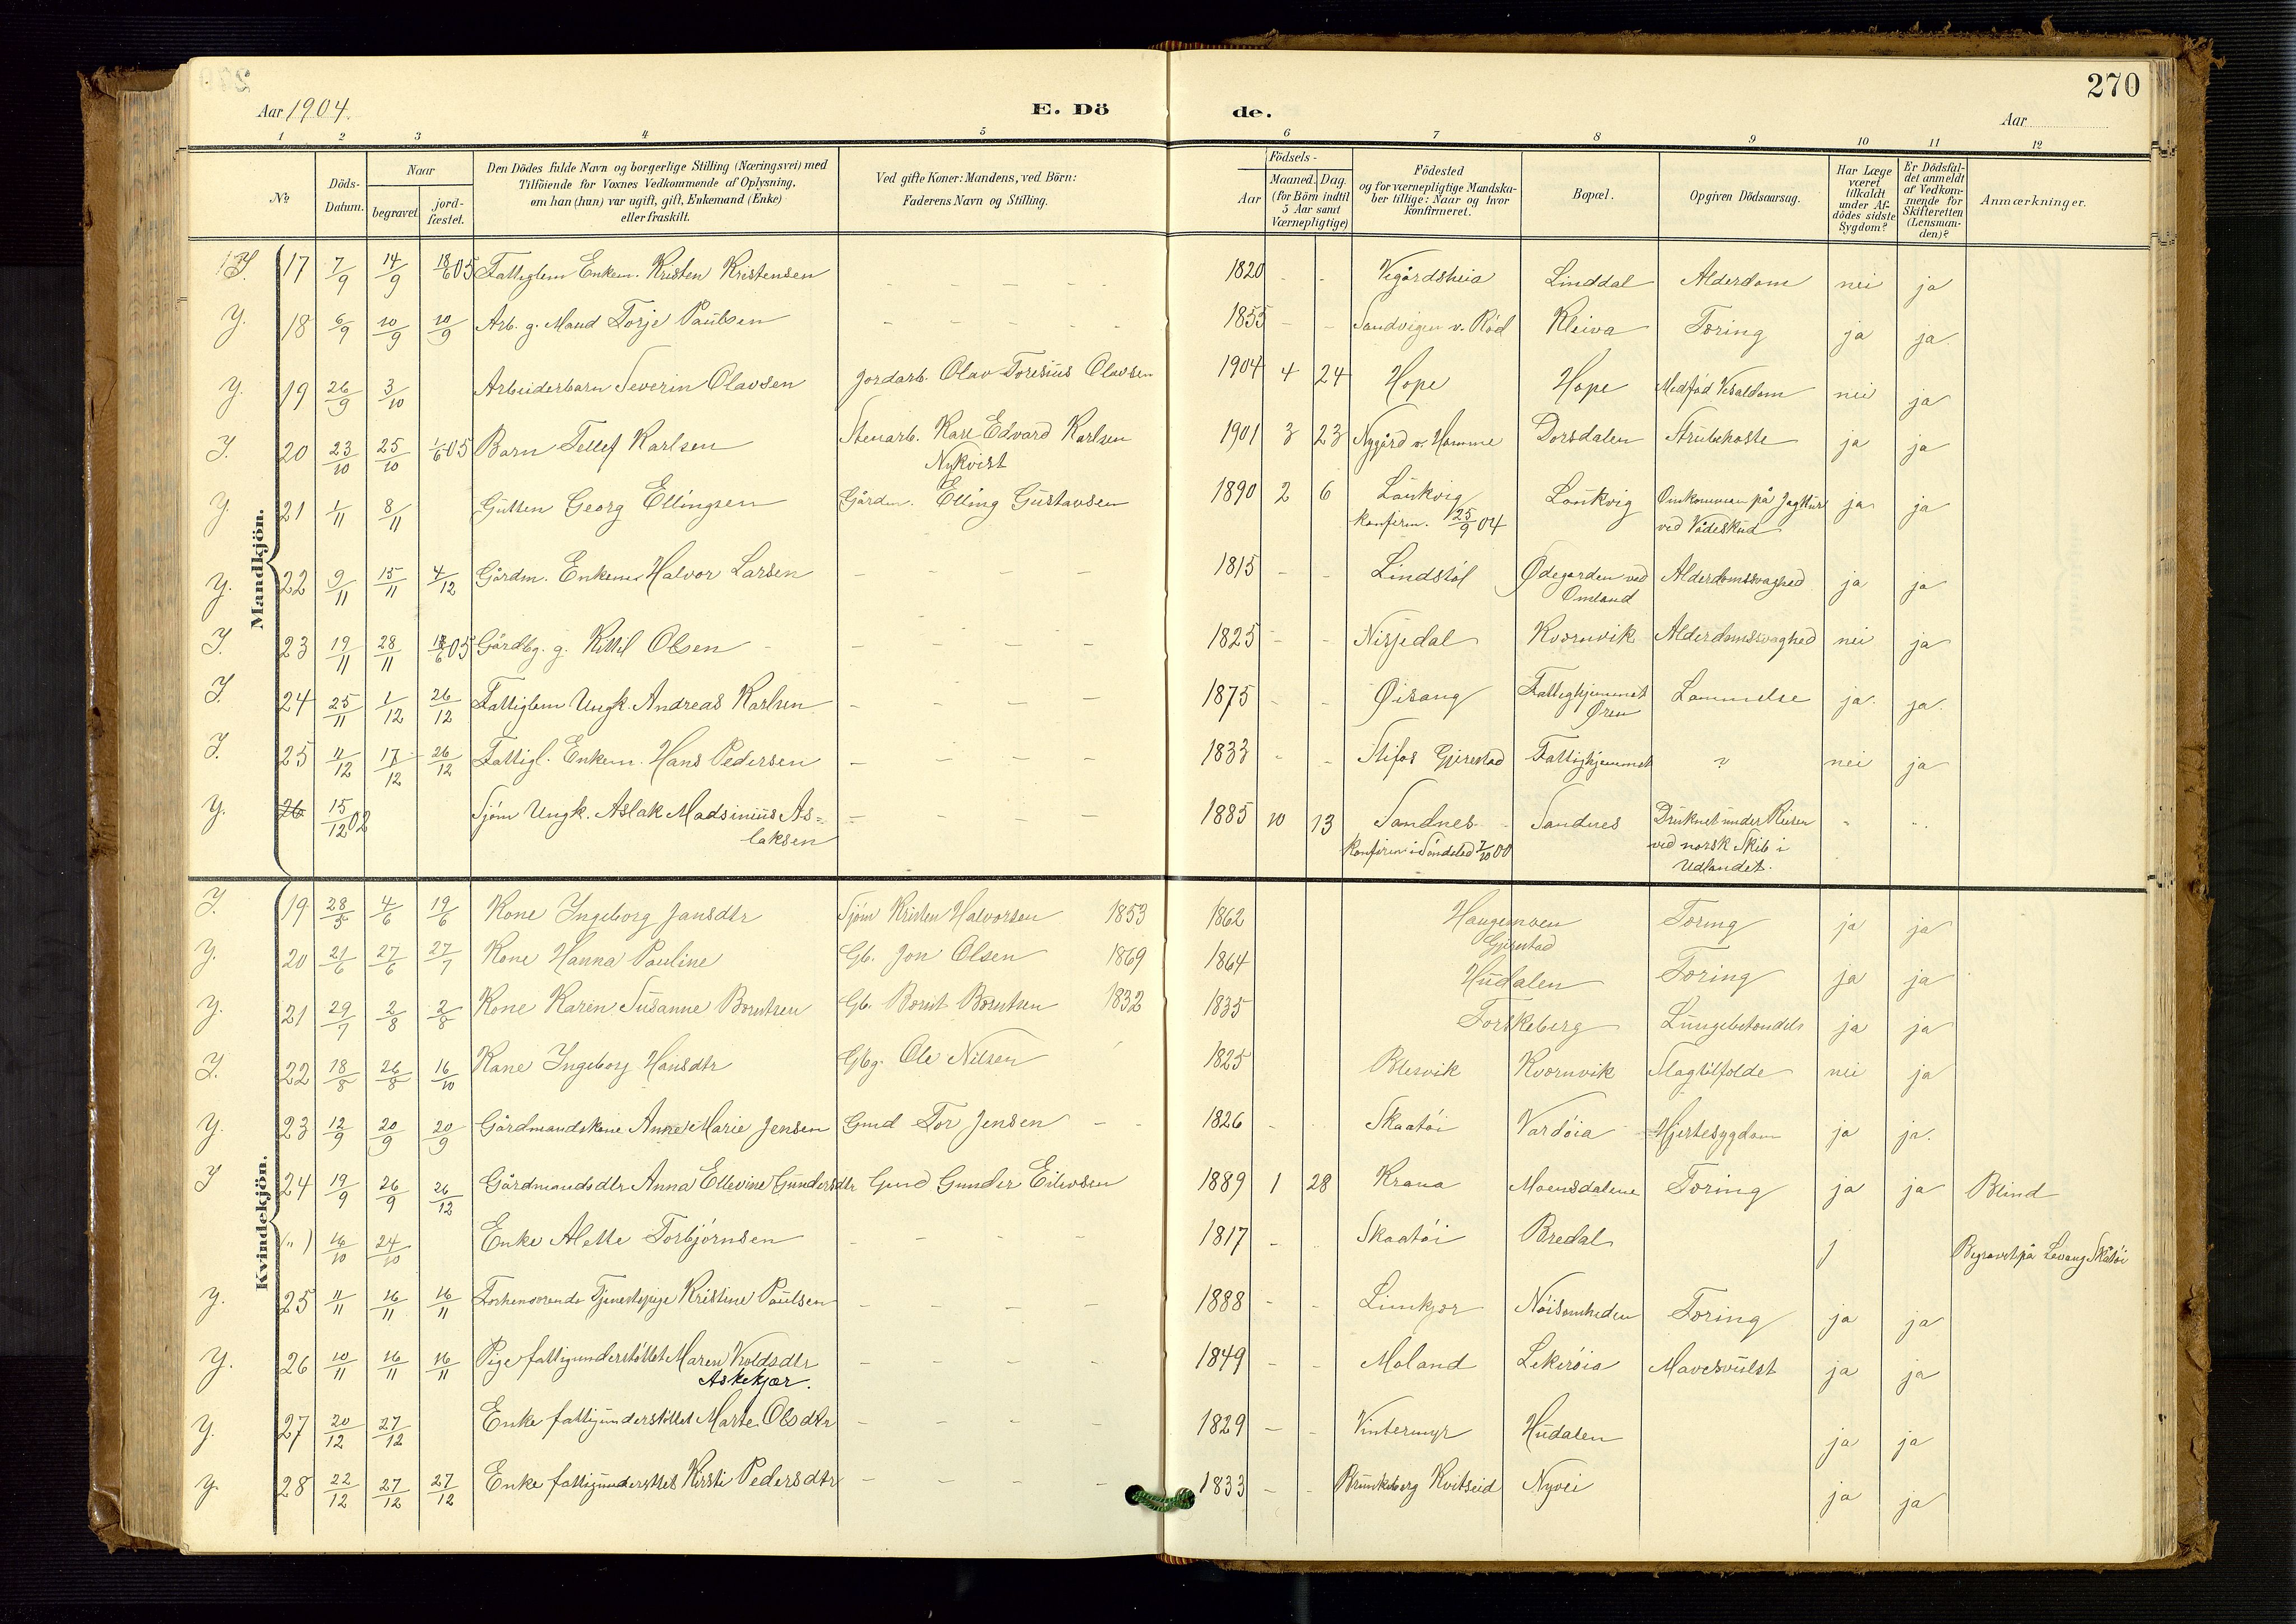 270
Aar 1904.
E. Dö
de.
Aar
1 2 3 4 5 6 7 8 9 10 11 12
No
Döds-Datum.
Naar
begravet
jordfæstet.
Den Dödes fulde Navn og borgerlige Stilling (Næringsvei) med
Tilföiende for Voxnes Vedkommende af Oplysning,
om han (hun) var ugift, gift, Enkemand (Enke)
eller fraskilt.
Ved gifte Koner: Mandens, ved Börn:
Faderens Navn og Stilling.
Födsels-
Aar
Maaned. Dag.
(for Börn indtil
5 Aar samt
Værnepligtige)
Födested
og for værnepligtige Mandska-
ber tillige: Naar og hvor
konfirmeret.
Bopæl.
Opgiven Dödsaarsag.
Har Læge
været
tilkaldt
under Af-
dödes sidste
Sygdom?
Er Dödsfal-
det anmeldt
af Vedkom-
mende for
Skifteretten
(Lensman-
den)?
Anmærkninger.
Mandkjön.
17 7/9 14/9 18/6 05 Fattiglem Enkem. Kristen Kristensen - - - - - 1820 - - Vegårdsheia Linddal Alderdom nei ja
Y. 18 6/9 10/9 10/9 Arb. g. Mand Torje Paulsen - - - - - 1855 - - Sandvigen v. Röd Kleiva Tæring ja ja.
Y. 19 26/9 3/10 Arbeiderbarn Severin Olavsen Jordarb. Olav Toresius Olavsen 1904 4 24 Hope Hope Medfød Vesaldom nei ja
J. 20 23/10 25/10 1/6 05 Barn Tellef Karlsen Stenarb. Karl Edvard Karlsen 1901 3 23 Nygård v. Homme Dorsdalen Strubehoste ja ja
Nykvist
Y. 21 1/11 8/11 Gutten Georg Ellingsen Gårdm. Elling Gustavsen 1890 2 6 Lönkvig Lonkvig Omkommen på Jagttur ja ja
konfirm. 25/9 04 ved Vådeskud
Y. 22 9/11 15/11 4/12 Gårdm. Enkem. Halvor Larsen - - - - 1815 - - Lindstöl Ødegården ved Alderdomssvaghed ja ja
Omland
J. 23 19/11 28/11 18/6 05 Gårdbg. g. Kittil Olsen - - - - 1825 - - Nisjedal Kvornvik Alderdomssvaghed nei ja
J. 24 25/11 1/12 26/12 Fattiglem Ungk. Andreas Karlsen - - - - 1875 - - Øisang Fattighjemmet Lammelse ja. ja.
Øren
J. 25 11/12 17/12 26/12 Fattigl. Enkem. Hans Pedersen - - - - 1833 - - Stifos Gjerestad Fattighjemmet ? nei ja
Y. 26 15/12 02 Sjöm Ungk. Aslak Madsinius As= - - - - 1885 10 13 Sandnes Sandnes Druknet under Reisen - -
laksen konfirm. i Söndeled 7/10 00 ved norsk Skib i
Udlandet.
Kvindekjön.
J. 19 28/5 4/6 19/6 Kone Ingeborg Jansdtr Sjöm Kristen Halvorsen 1853 1862 Haugemoen Tæring ja ja
Gjerestad
Y. 20 21/6 27/6 27/7 Kone Hanna Pauline Gb. Jon Olsen 1869 1864 Hudalen Tæring ja ja
Y. 21 29/7 2/8 2/8 Kone Karen Susanne Borntsen Gb. Bornt Borntsen 1832 1835 Torskeberg Lungebetændels ja ja
J. 22 18/8 26/8 16/10 Kone Ingeborg Hansdtr Gbg. Ole Nilsen 1825 Blesvik Kvornvik Slagtilfælde nei ja
Y. 23 12/9 20/9 20/9 Gårdmandskone Anne Marie Jensen Gmd Tor Jensen - - 1826 - - Skaatöi Vardöia Hjertesygdom ja ja.
J 24 19/9 26/9 26/12 Gårdmandsdtr Anna Ellevine Gundersdtr Gmd Gunder Eilevsen 1889 1 28 Krana Moensdalene Tæring ja ja Blind
(") 16/10 24/10 Enke Alette Torbjörnsen - - - - 1817 - - Skaatöi Bredal j Begravet på Levang Skåtöi
Y. 25 11/11 16/11 16/11 Forhenværende Tjenestepige Kristine Paulsen - - - - 1888 - - Limkjær Nöisomheden Tæring ja ja
Y. 26 10/11 16/11 16/11 Pige fattigunderstöttet Maren Knoldsdtr - - - - 1849 - - Moland Lekeröia Mavesvulst ja ja
Askekjær.
Y. 27 20/12 27/12 Enke fattigunderstöttet Marte Olsdtr - - - - 1829 - - Vintermyr Hudalen ja ja
Y. 28 22/12 27/12 27/12 Enke fattigunderstöttet Kirsti Pedersdtr - - - - 1833 - - Brunkeberg Kvitseid Nyvei ja ja